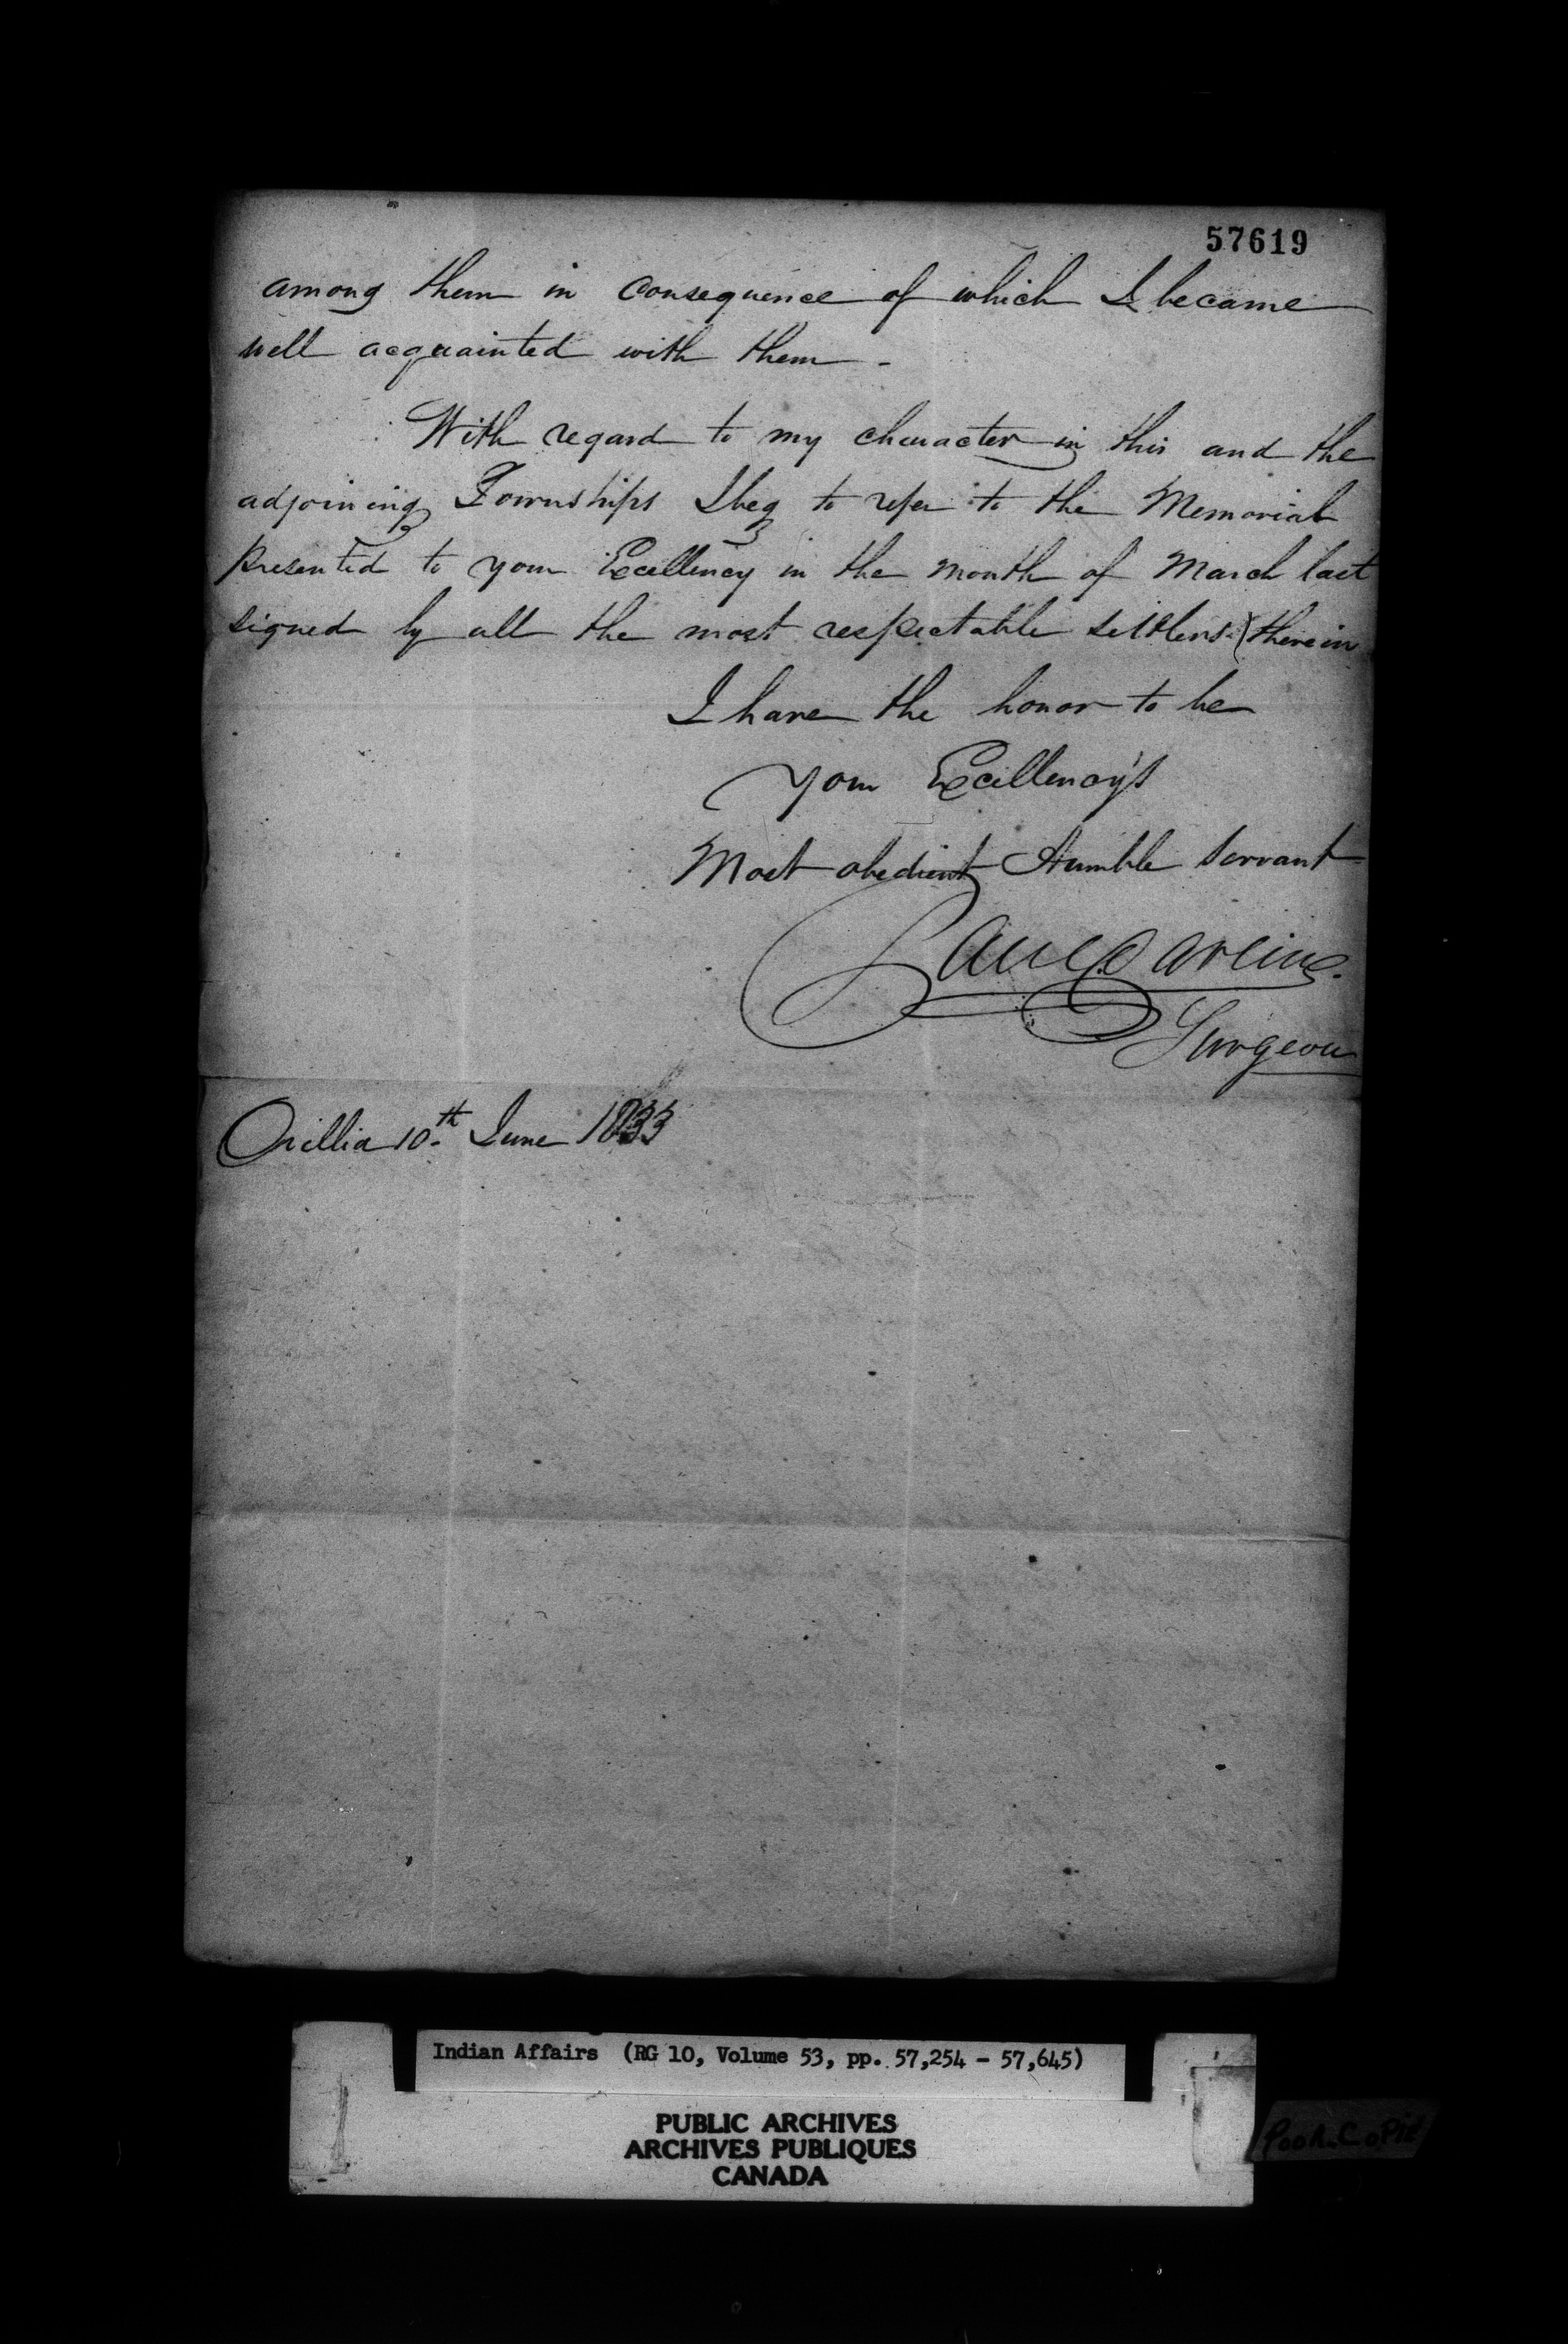 57619
among them in consequence of which I became
well acquainted with them -
With regard to my character in this and the
adjoining Townships I beg to refer to the Memorial
presented to your Excellency in the month of March last
signed by all the most respectable settlers (therein
I have the honor to be
Your Excellency's
Most obedient Humble Servant
Surgeon
Orillia 10th June 1833
Indian Affairs (RG 10, Volume 53, pp. 57,254 - 57,645)
PUBLIC ARCHIVES
ARCHIVES PUBLIQUES
CANADA
Poor Copie